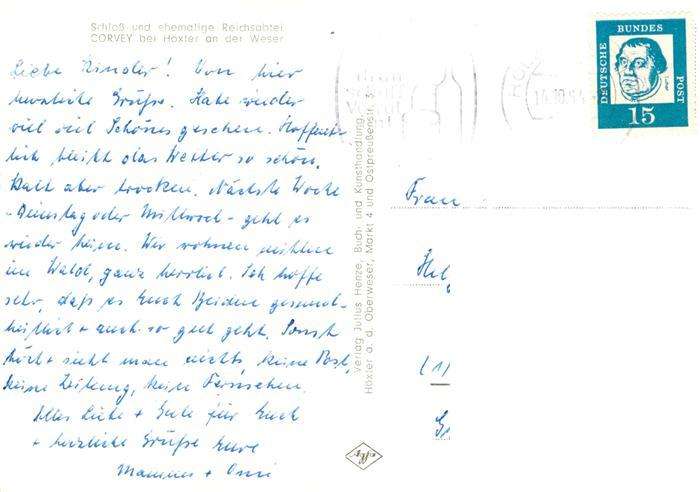 Schloß und ehemalige Reichsabtei
CORVEY bei Höxter an der Weser
Liebe Kinder! Von hier
herzliche Grüße. Habe wieder
viel viel Schönes gesehen. Hoffent-
lich bleibt das Wetter so schön.
Kalt aber trocken. Nächste Woche
- Dienstag oder Mittwoch - geht es
wieder heim. Wir wohnen mitten
im Wald, ganz herrlich. Ich hoffe
sehr, daß es Euch Beiden gesund-
heitlich + auch so gut geht. Sonst
hört + sieht man nichts, keine Post,
keine Zeitung, kein Fernsehen.
Alles Liebe + Gute für Euch
+ herzliche Grüße Eure
+ Omi
Verlag Julius Henze, Buch- und Kunsthandlung,
Höxter a. d. Oberweser, Markt 4 und Ostpreußenstr.
DEUTSCHE BUNDES POST
Luther
15
Frau
(1)